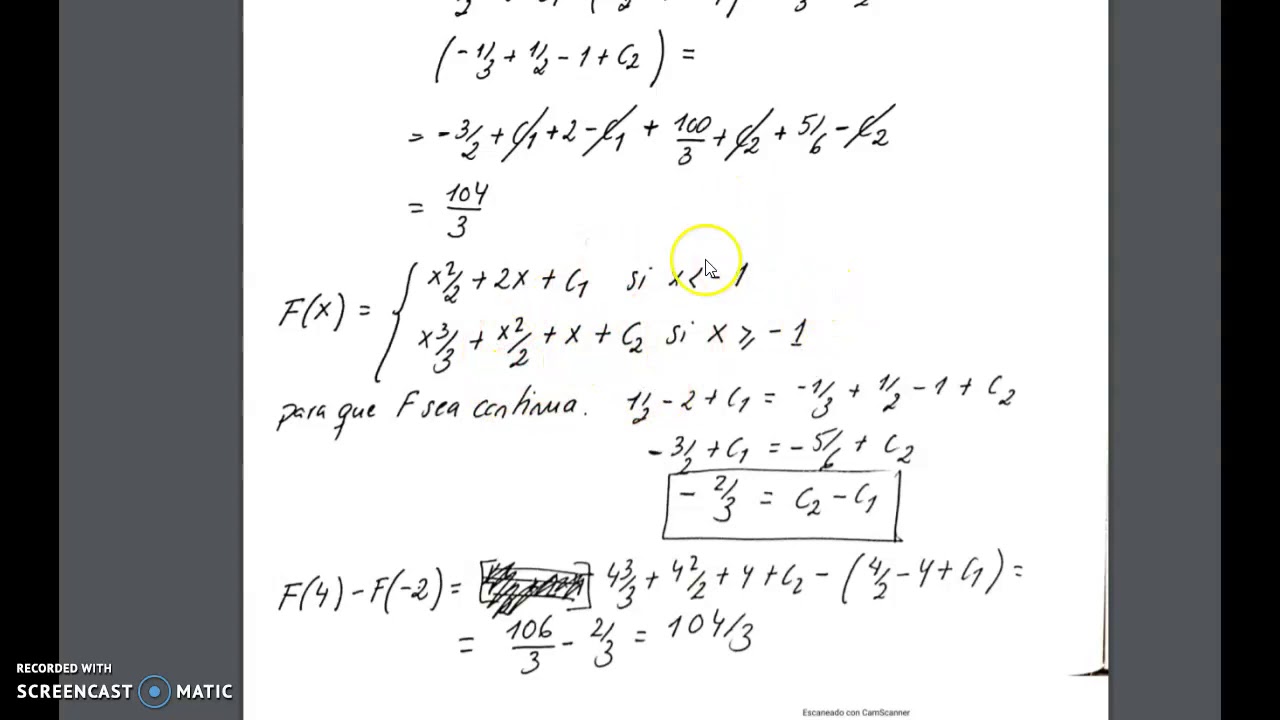 (-1/3 + 1/2 - 1 + C2) =
= -3/2 + C1 + 2 - C1 + 100/3 + C2 + 5/6 - C2
= 104/3
F(x) = { x²/2 + 2x + C1 si x < -1
x³/3 + x²/2 + x + C2 si x ⩾ -1
para que F sea continua. 1/2 - 2 + C1 = -1/3 + 1/2 - 1 + C2
-3/2 + C1 = -5/6 + C2
-2/3 = C2 - C1
F(4) - F(-2) = 4³/3 + 4²/2 + 4 + C2 - (4/2 - 4 + C1) =
= 106/3 - 2/3 = 104/3
RECORDED WITH
SCREENCAST MATIC
Escaneado con CamScanner